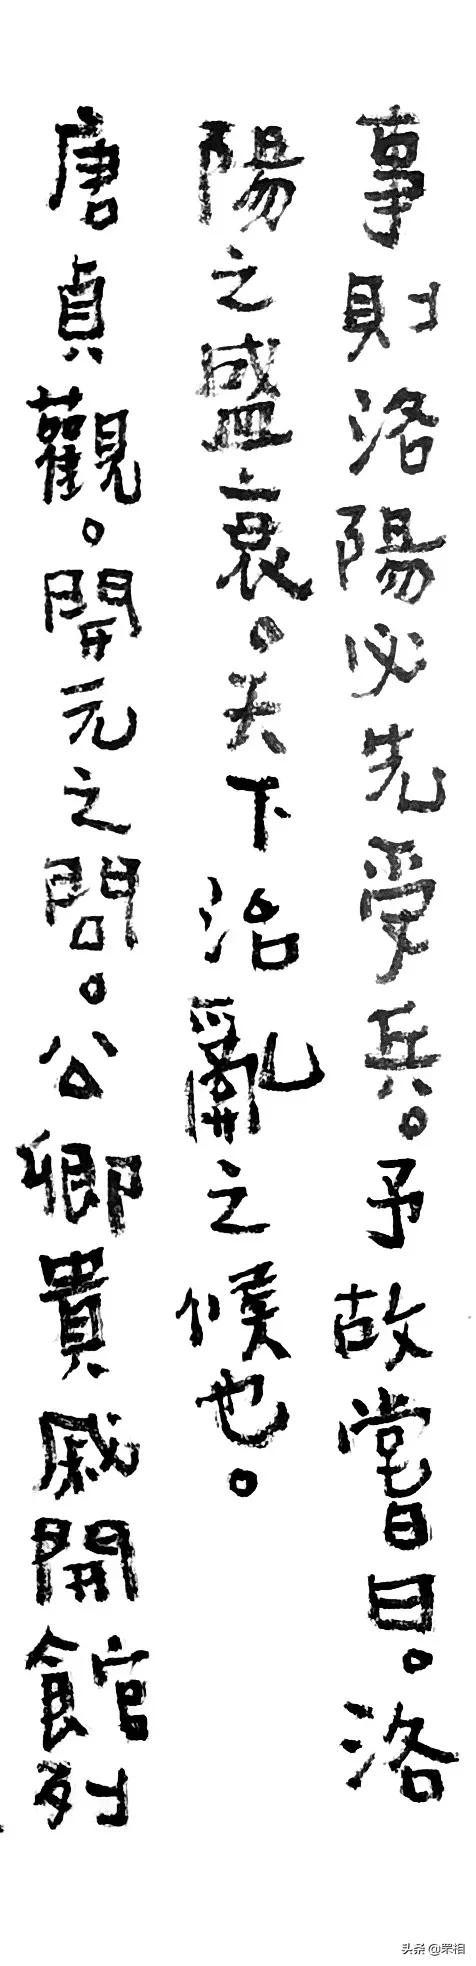 事則洛陽必先受兵。予故嘗曰。洛
陽之盛衰。天下治亂之候也。
唐貞觀。開元之間。公卿貴戚開館列
头条 @罘相